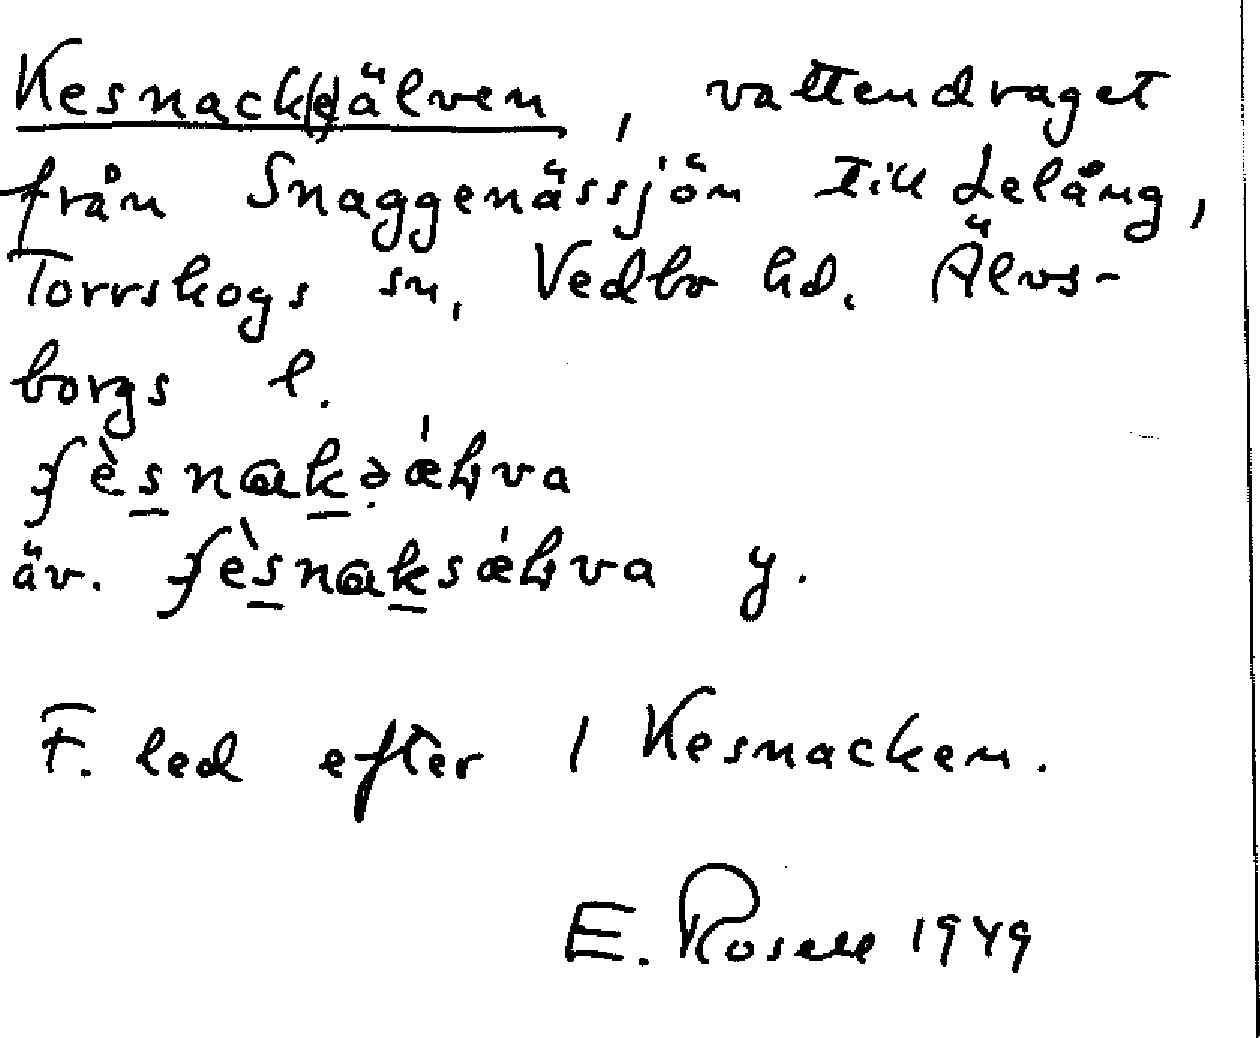 Kesnack(e)älven, vattendraget
från Snaggenässjön till Lelång,
Torrskogs sn, Vedbo hd. Älvs-
borgs l.
äv. y.
F. led efter 1 Kesnacken.
E. Rosell 1949